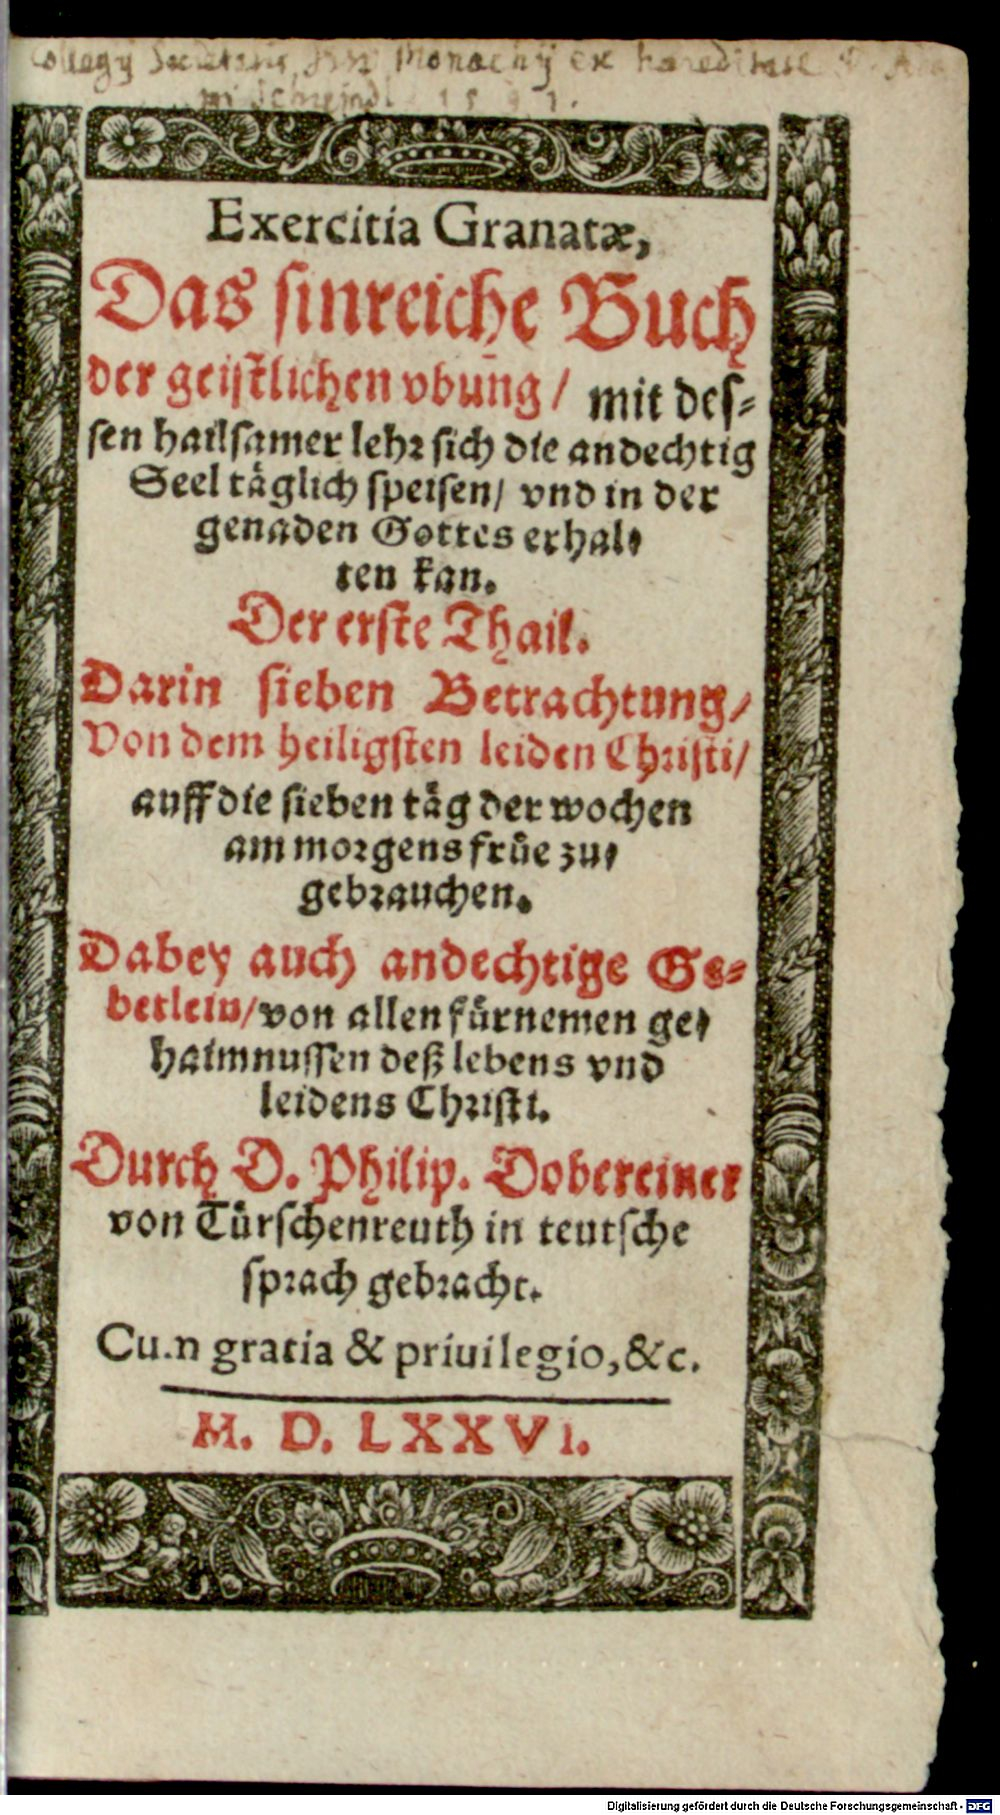 Collegij Societatis Jesu Monachij ex hereditate D. Ada
mi Schreindl 1591.
Exercitia Granatæ,
Das sinreiche Buch
der geistlichen vbūng / mit des⸗
sen hailsamer lehr sich die andechtig
Seel täglich speisen / vnd in der
genaden Gottes erhal⸗
ten kan.
Der erste Thail.
Darin sieben Betrachtung /
Von dem heiligsten leiden Christi /
auff die sieben täg der wochen
am morgens früe zu⸗
gebrauchen.
Dabey auch andechtige Ge⸗
betlein / von allen fürnemen ge⸗
haimnussen deß lebens vnd
leidens Christi.
Durch D. Philip. Dobereiner
von Türschenreuth in teutsche
sprach gebracht.
Cum gratia & priuilegio, &c.
M. D. LXXVI.
Digitalisierung gefördert durch die Deutsche Forschungsgemeinschaft - DFG